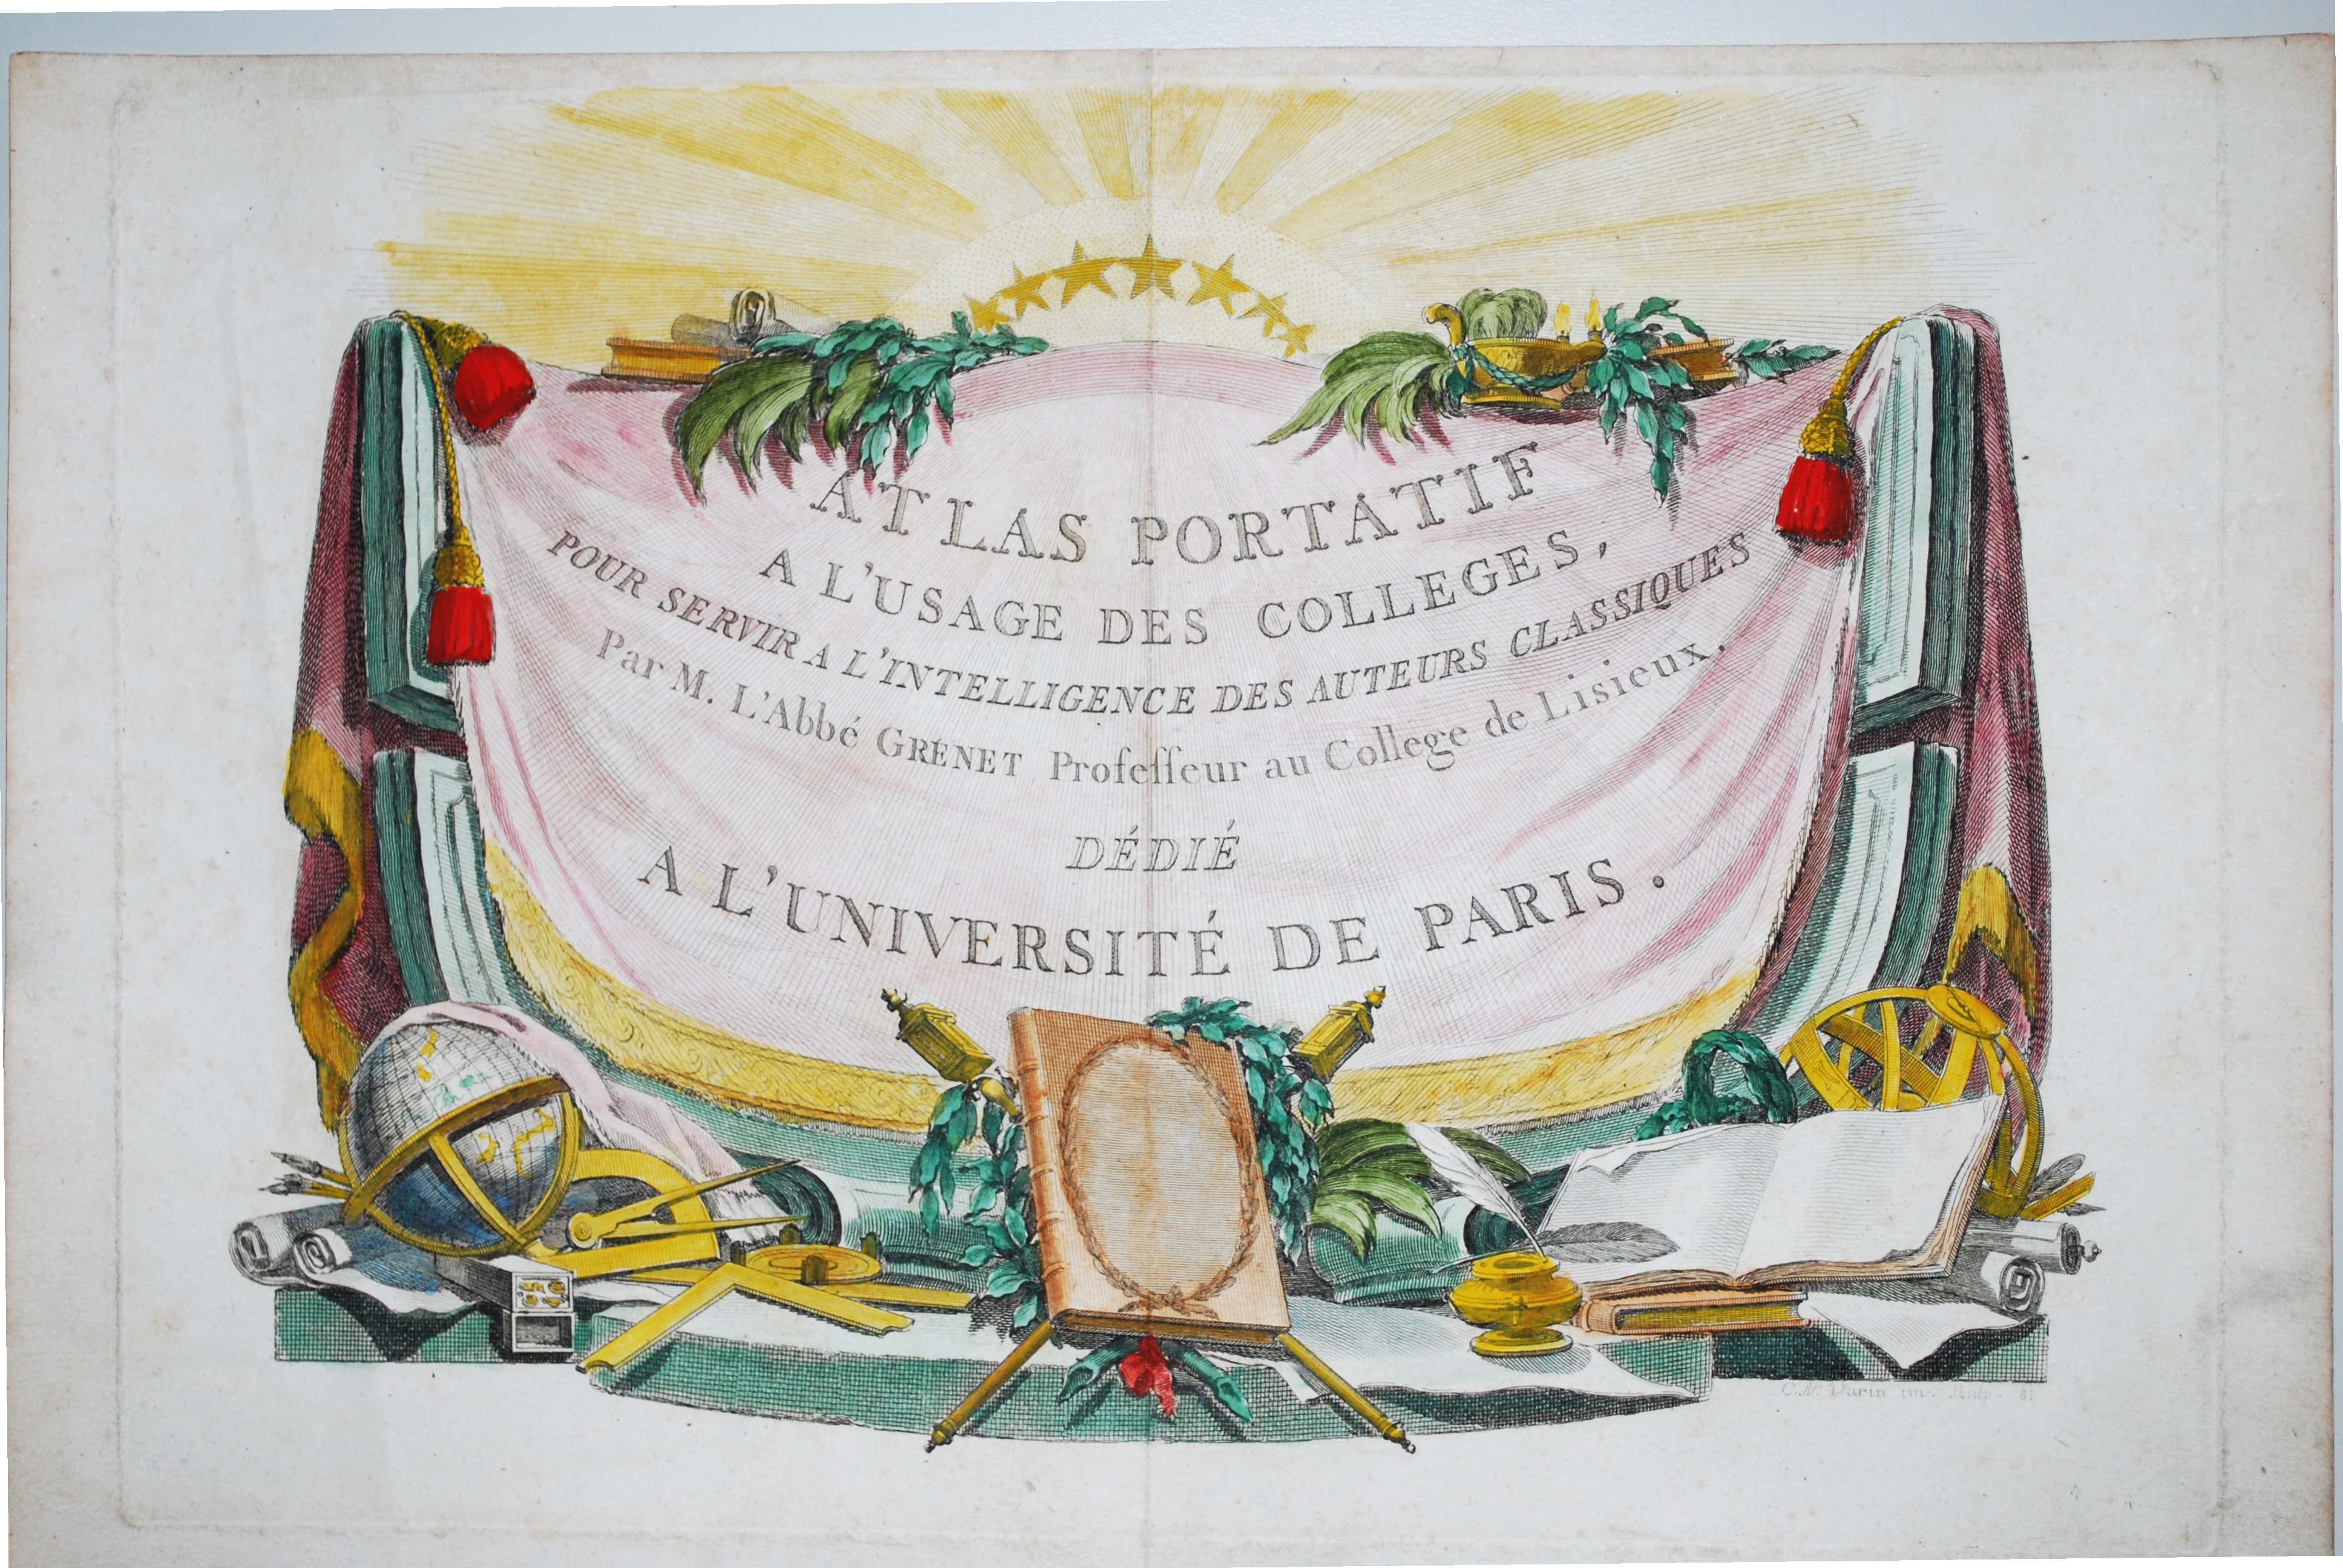 ATLAS PORTATIF
A L'USAGE DES COLLEGES,
POUR SERVIR A L'INTELLIGENCE DES AUTEURS CLASSIQUES
Par M. L'Abbé GRENET Profeſſeur au College de Lisieux,
DÉDIÉ
A L'UNIVERSITÉ DE PARIS.